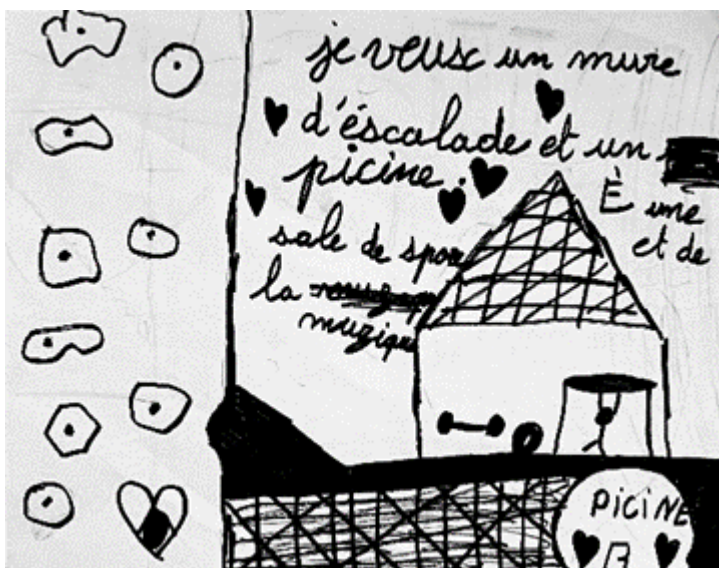 je veux un mure
d'éscalade et un
picine.
È une
sale de spor
et de
la
muzique
PICINE